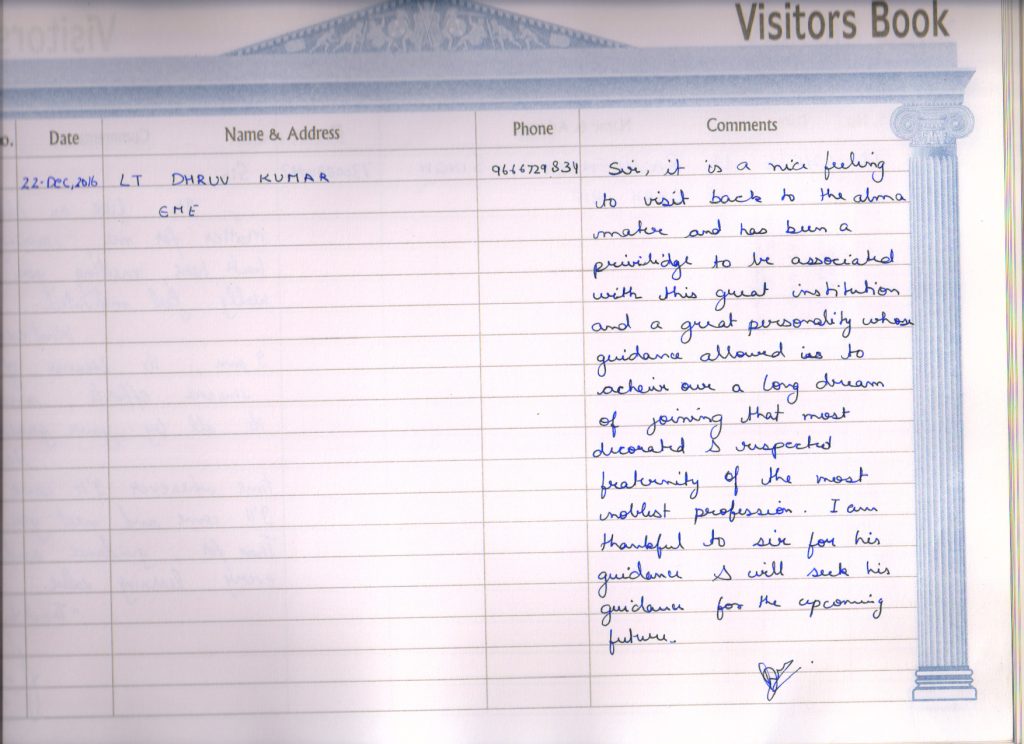 Visitors Book
o. Date Name & Address Phone Comments
22-Dec,2016 LT DHRUV KUMAR 9666729834 Sir, it is a nice feeling
EME to visit back to the alma
mater and has been a
privilidge to be associated
with this great institution
and a great personality whose
guidance allowed us to
acheiv our a long dream
of joining that most
decorated & respected
fraternity of the most
noblest profession. I am
thankful to sir for his
guidance & will seek his
guidance for the upcoming
future.